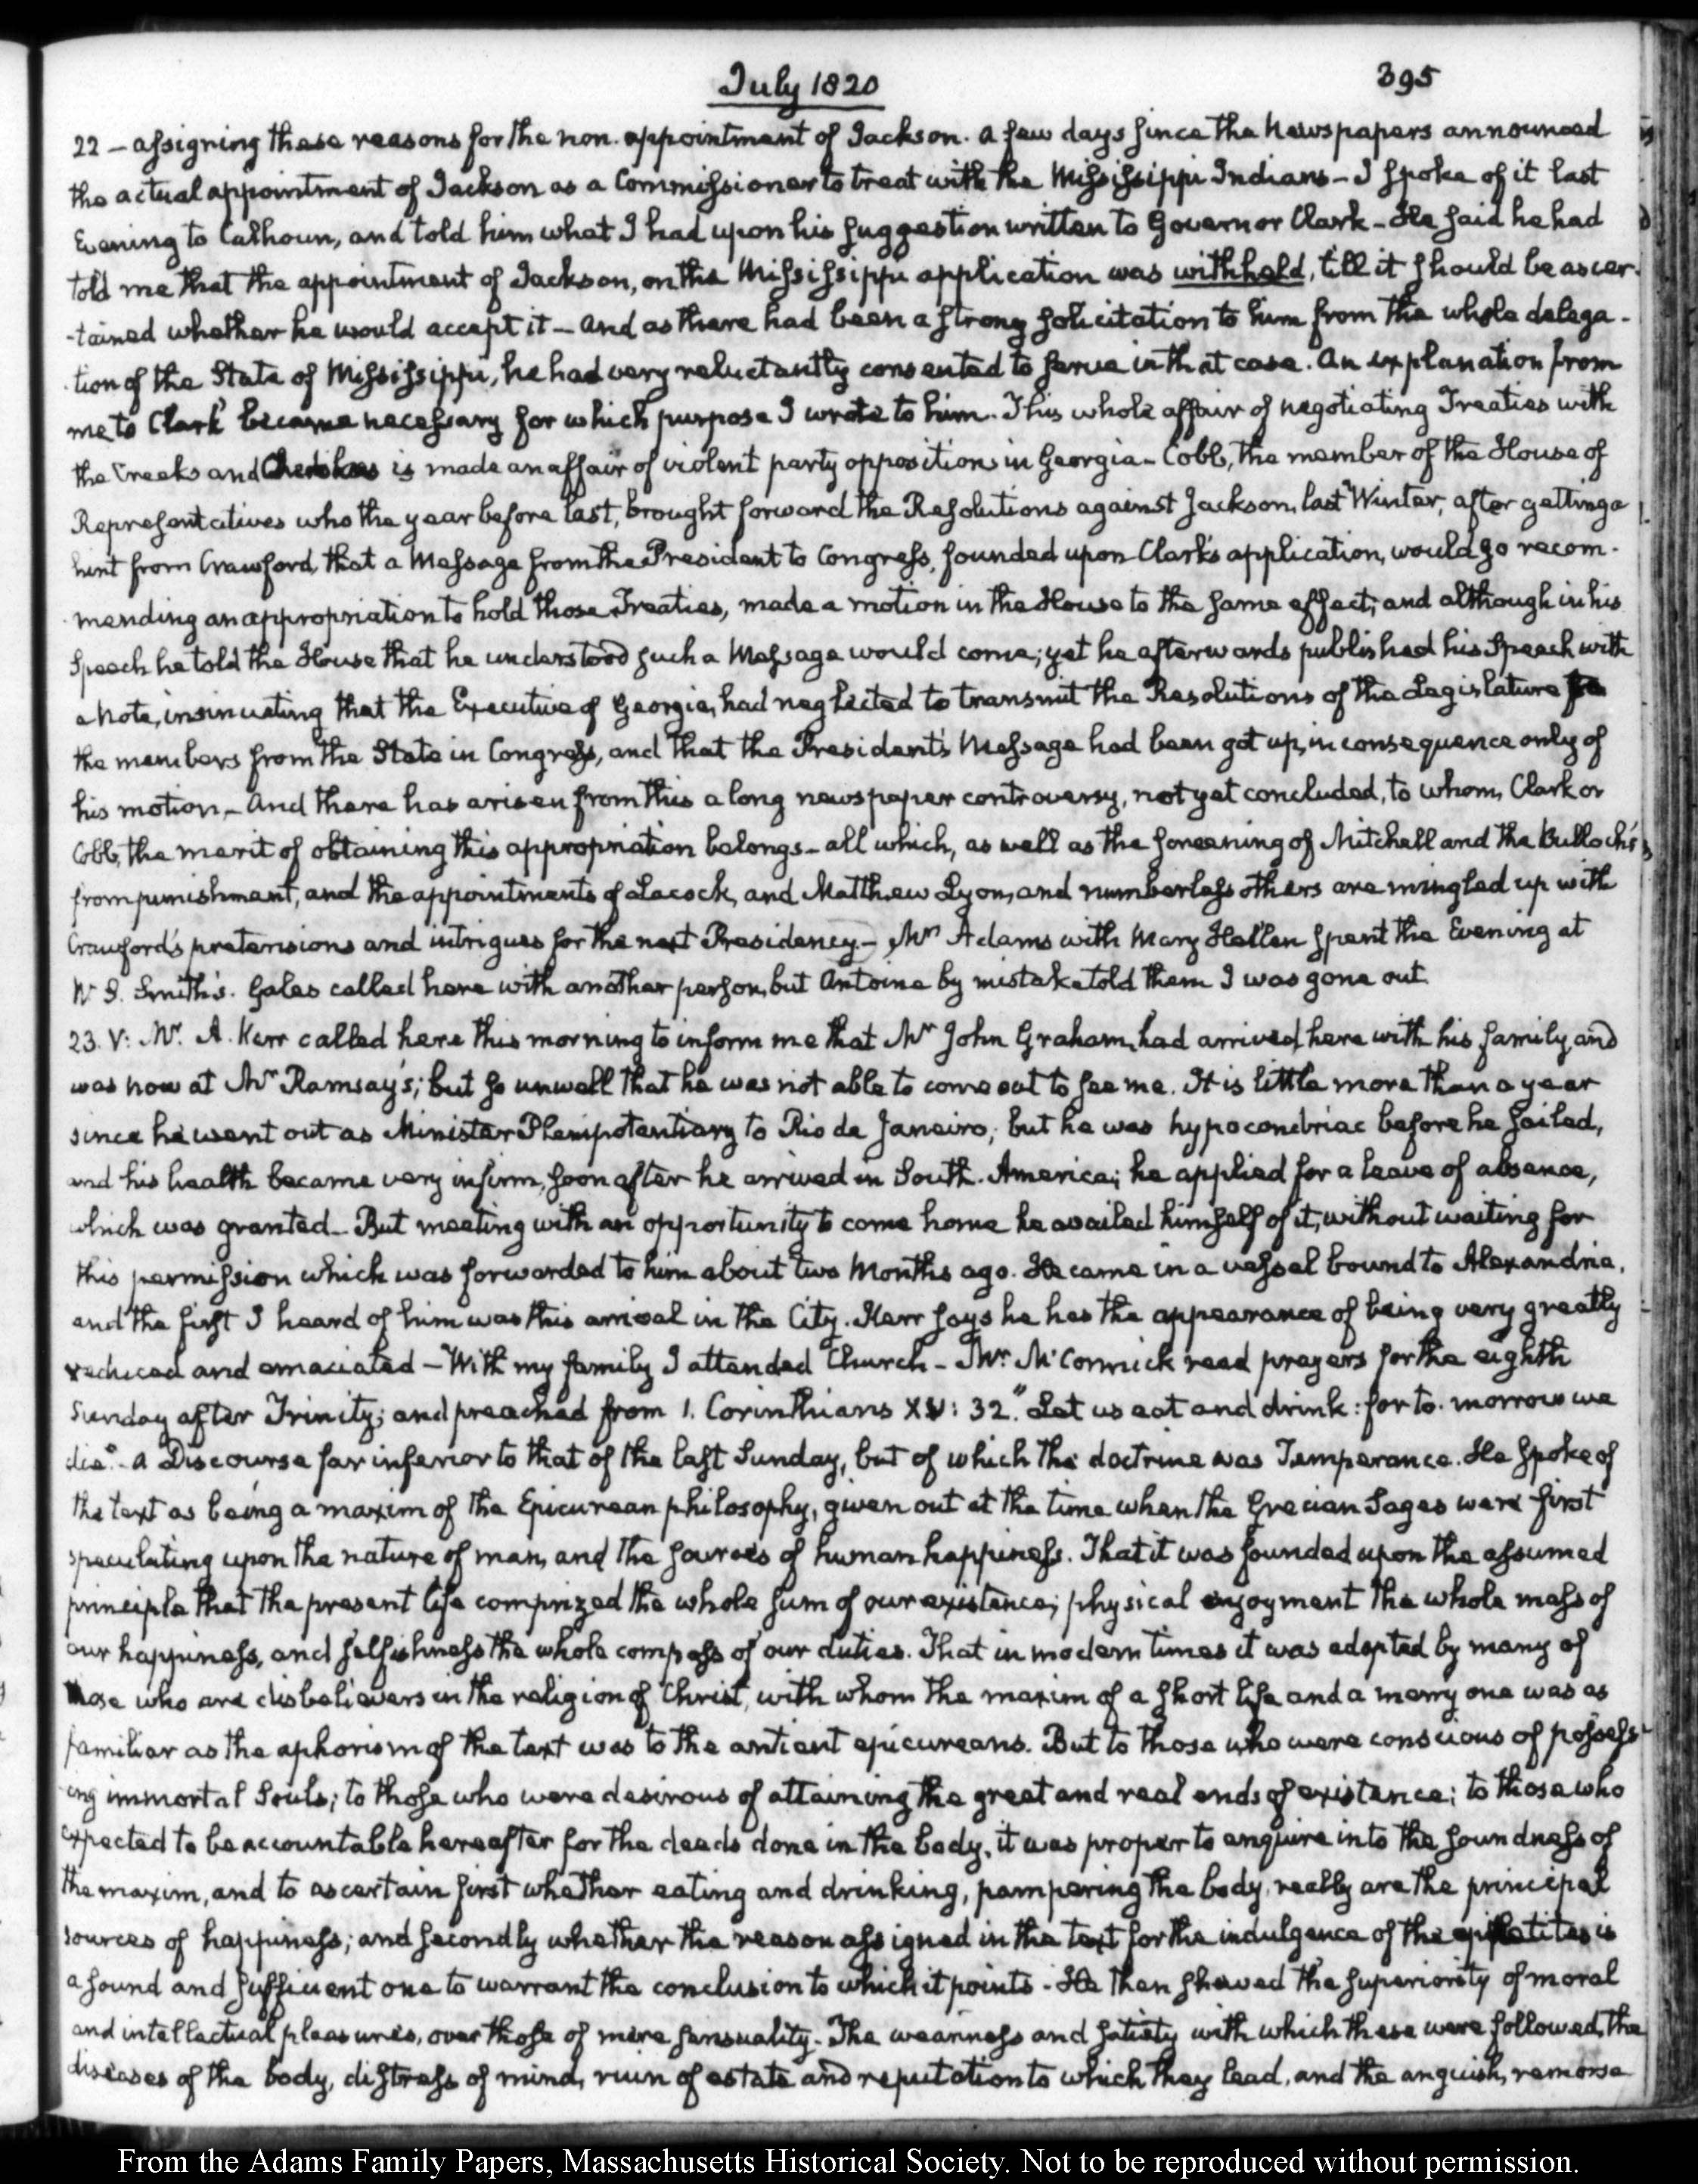 July 1820
395
22 — assigning these reasons for the non-appointment of Jackson. A few days since the Newspapers announced
the actual appointment of Jackson as a Commissioner to treat with the Mississippi Indians — I spoke of it last
Evening to Calhoun, and told him what I had upon his suggestion written to Governor Clark — He said he had
told me that the appointment of Jackson, on the Mississippi application was withheld, till it should be ascer-
-tained whether he would accept it — And as there had been a strong solicitation to him from the whole delega-
-tion of the State of Mississippi, he had very reluctantly consented to serve in that case. An explanation from
me to Clark became necessary for which purpose I wrote to him. This whole affair of negotiating Treaties with
the Creeks and Cherokees is made an affair of violent party opposition in Georgia — Cobb, the member of the House of
Representatives who the year before last, brought forward the Resolutions against Jackson, last Winter, after getting a
hint from Crawford, that a Message from the President to Congress, founded upon Clark's application, would go recom-
-mending an appropriation to hold those Treaties, made a motion in the House to the same effect; and although in his
Speech he told the House that he understood such a Message would come; yet he afterwards published his Speech with
a Note, insinuating that the Executive of Georgia, had neglected to transmit the Resolutions of the Legislature to
the members from the State in Congress, and that the President's Message had been got up, in consequence only of
his motion — And there has arisen from this a long newspaper controversy, not yet concluded, to whom, Clark or
Cobb, the merit of obtaining this appropriation belongs — all which, as well as the screening of Mitchell and the Bullochs
from punishment, and the appointments of Lacock, and Matthew Lyon, and numberless others are mingled up with
Crawford's pretensions and intrigues for the next Presidency — Mrs Adams with Mary Hellen spent the Evening at
W. S. Smith's. Gales called here with another person, but Antoine by mistake told them I was gone out.
23. V: Mr. A. Kerr called here this morning to inform me that Mr John Graham, had arrived here with his family, and
was now at Mr Ramsay's; but so unwell that he was not able to come out to see me. It is little more than a year
since he went out as Minister Plenipotentiary to Rio de Janeiro; but he was hypocondriac before he sailed,
and his health became very infirm, soon after he arrived in South-America; he applied for a leave of absence,
which was granted — But meeting with an opportunity to come home he availed himself of it, without waiting for
this permission which was forwarded to him about two Months ago. He came in a vessel bound to Alexandria,
and the first I heard of him was this arrival in the City. Kerr says he has the appearance of being very greatly
reduced and emaciated — With my family I attended Church — Mr. McCormick read prayers for the eighth
Sunday after Trinity; and preached from 1. Corinthians XV: 32. "Let us eat and drink: for to-morrow we
die." A Discourse far inferior to that of the last Sunday, but of which the doctrine was Temperance. He spoke of
the text as being a maxim of the Epicurean philosophy, given out at the time when the Grecian Sages were first
speculating upon the nature of man, and the sources of human happiness. That it was founded upon the assumed
principle that the present life comprized the whole sum of our existence; physical enjoyment the whole mass of
our happiness, and selfishness the whole compass of our duties. That in modern times it was adopted by many of
those who are disbelievers in the religion of Christ, with whom the maxim of a short life and a merry one was as
familiar as the aphorism of the text was to the antient epicureans. But to those who were conscious of possess-
-ing immortal Souls; to those who were desirous of attaining the great and real ends of existence; to those who
expected to be accountable hereafter for the deeds done in the body, it was proper to enquire into the soundness of
the maxim, and to ascertain first whether eating and drinking, pampering the body, really are the principal
sources of happiness; and secondly whether the reason assigned in the text for the indulgence of the appetites is
a sound and sufficient one to warrant the conclusion to which it points — He then shewed the superiority of moral
and intellectual pleasures, over those of mere sensuality — The weariness and satiety with which these were followed, the
diseases of the body, distress of mind, ruin of estate and reputation to which they lead, and the anguish, remorse
From the Adams Family Papers, Massachusetts Historical Society. Not to be reproduced without permission.